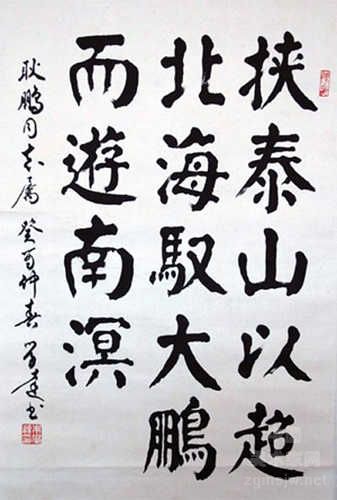 挟泰山以超
北海馭大鵬
而遊南溟
耿鵬同志属 癸酉仲春